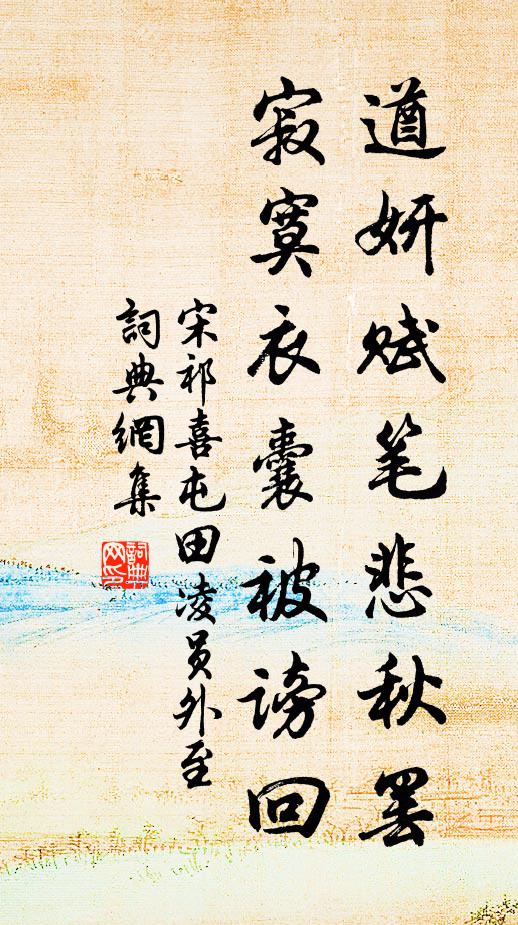 遒妍赋笔悲秋罢
寂寞衣囊被谤回
宋祁喜屯田凌员外至
詞典網集
詞典
网印